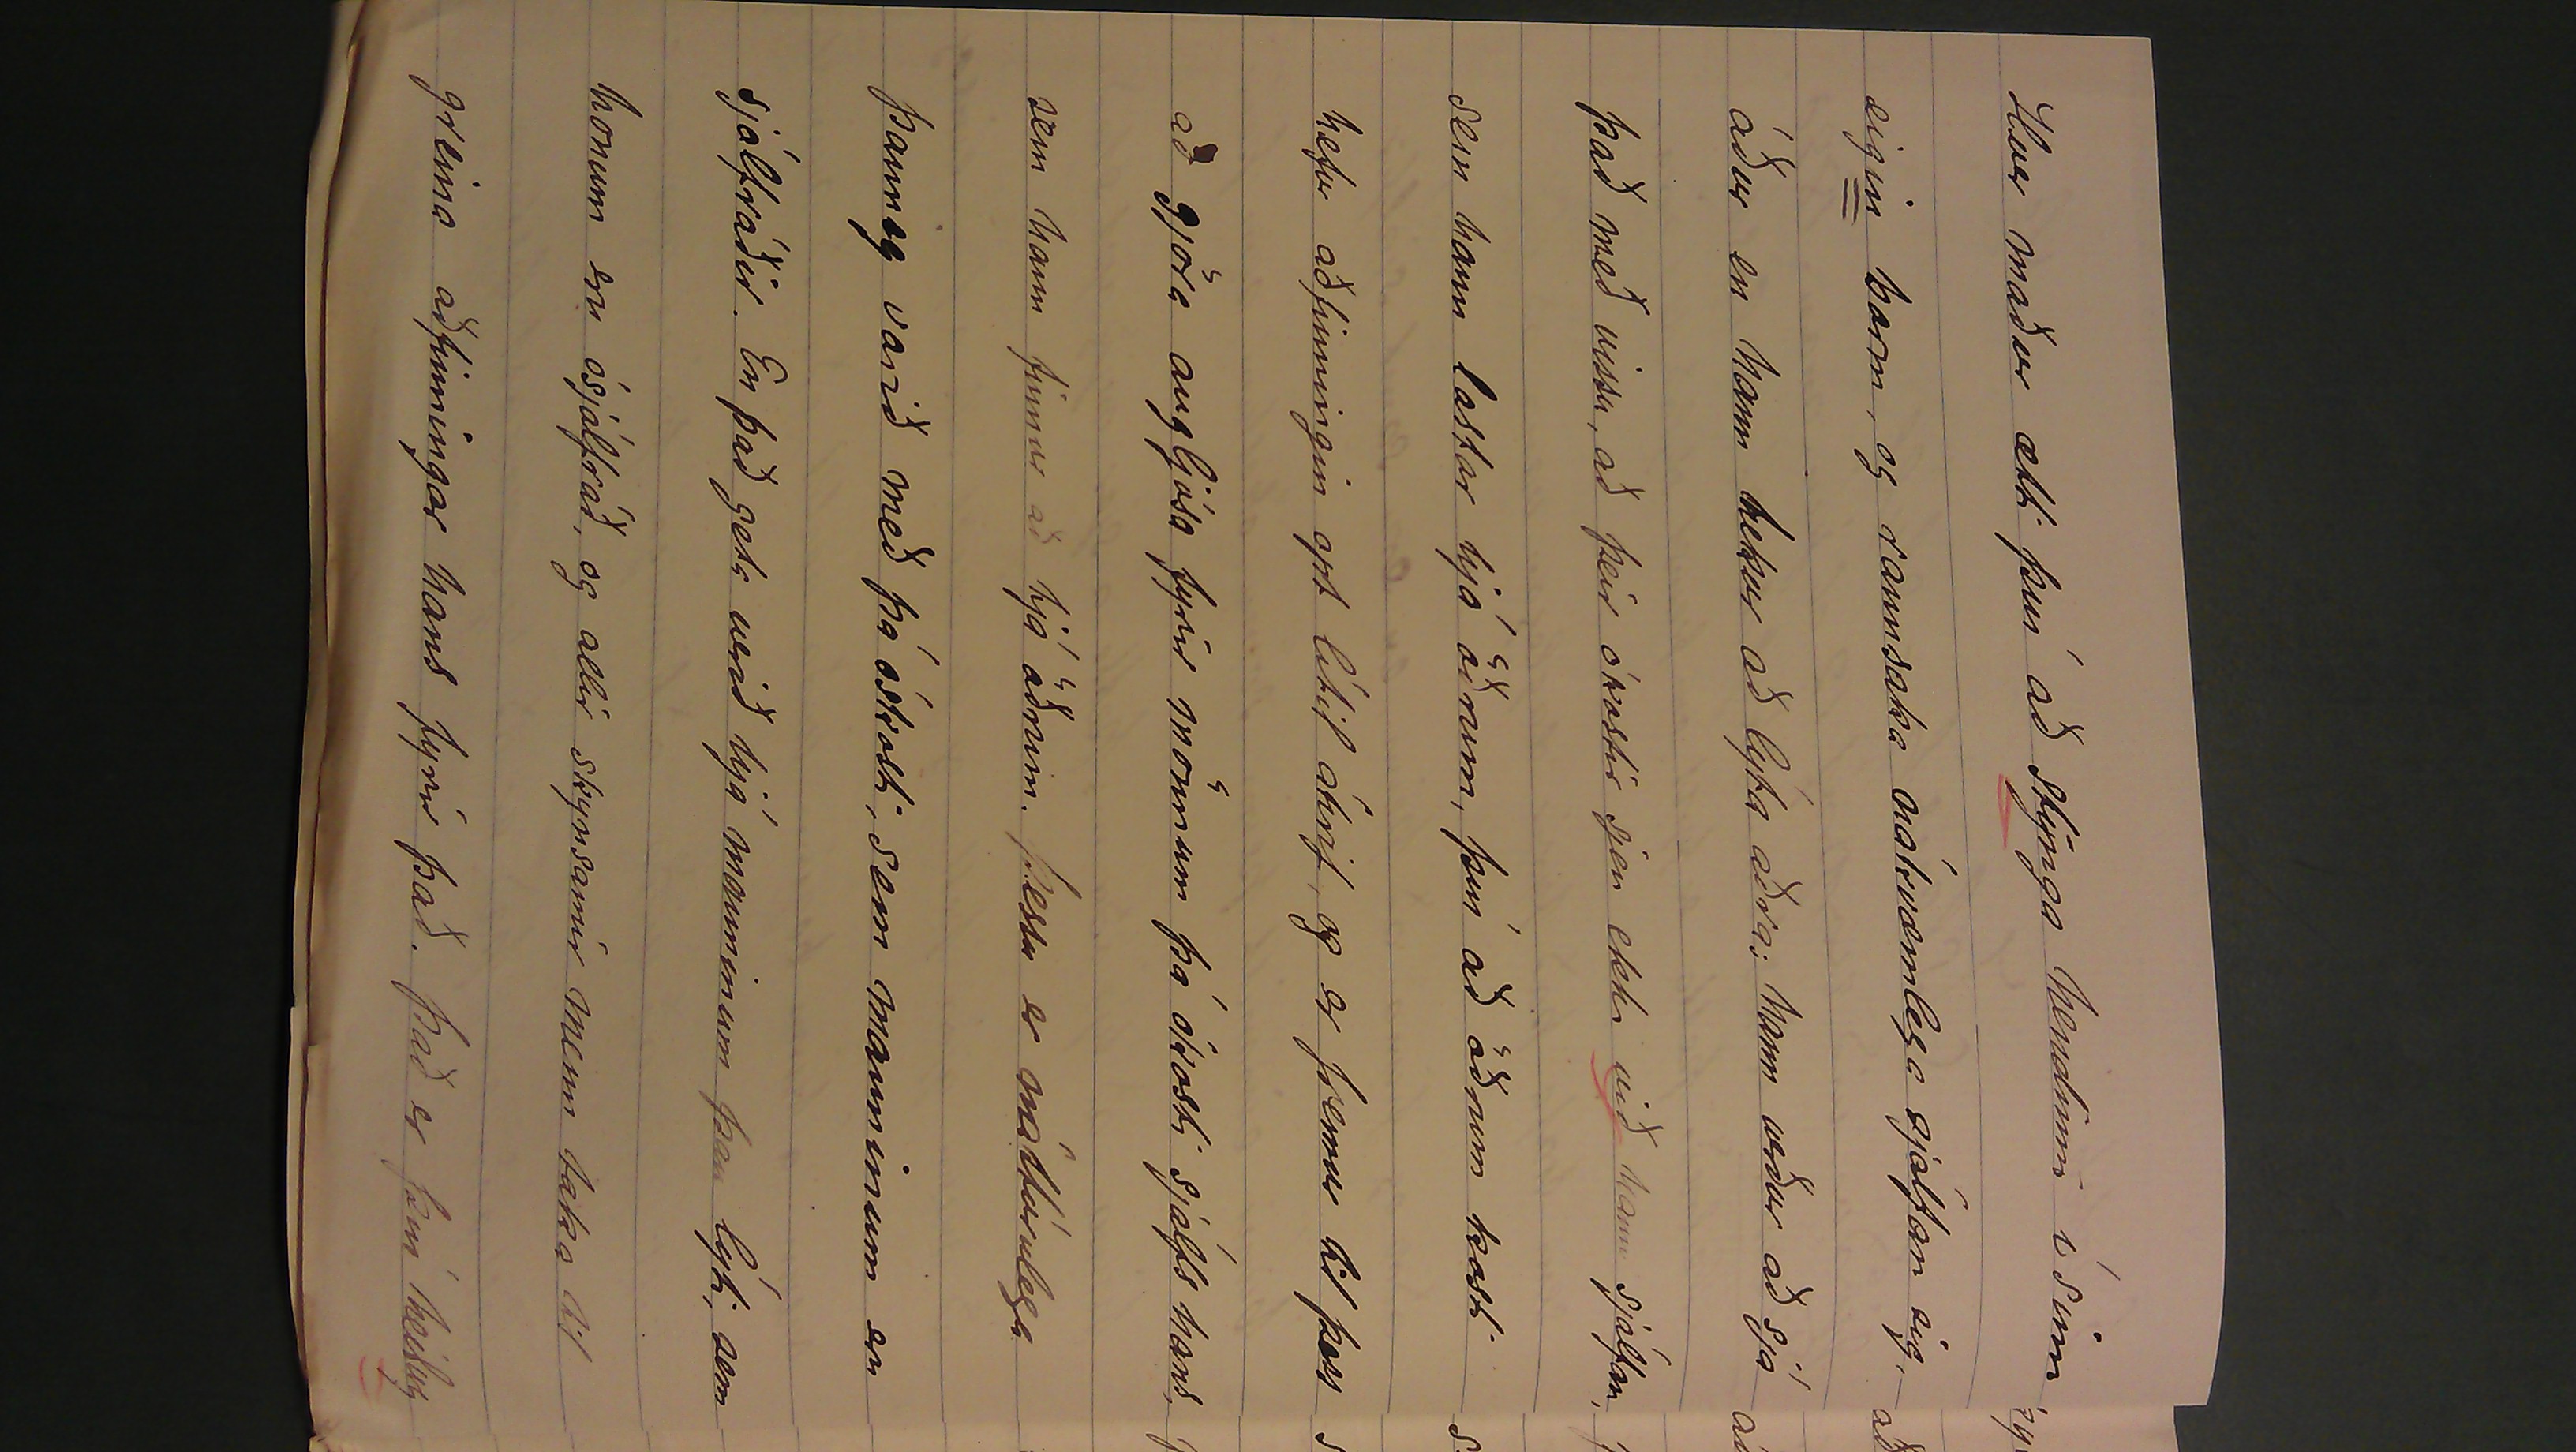 Hver maður ætti því að stýnga hendinni í sinn
eigin barm, og rannsaka nákvæmlega sjálfan sig,
áður en hann tekur að lýta aðra; hann verður að sjá
það með vissu, að þeir ókostir sjeu ekki við hann sjálfan,
sem hann lastar hjá öðrum, því að öðrum kosti
hefur aðfinningin opt lítil áhrif, og er fremur til þess
að gjöra augljósa fyrir mönnum þá ókosti sjálfs hans,
sem hann finnur að hjá öðrum. Þessu er náttúrulega
þannig varið með þá ókosti, sem manninum eru
sjálfráðir. En það geta verið hjá manninum þau lýti, sem
honum eru ósjálfráð, og allir skynsamir menn taka til
greina aðfinningar hans fyrir það. Það er því heiðug